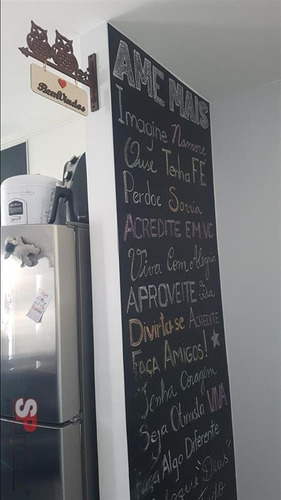 BemVindos
AME MAIS
Imagine Namore
Ouse Tenha FÉ
Perdoe Sorria
ACREDITE EM VC
Viva Com Alegria
APROVEITE a vida
Divirta-se ACREDITE
FAÇA AMIGOS!
Tenha Coragem
Seja Otimista VIVA
Algo Diferente
que Deus
SP